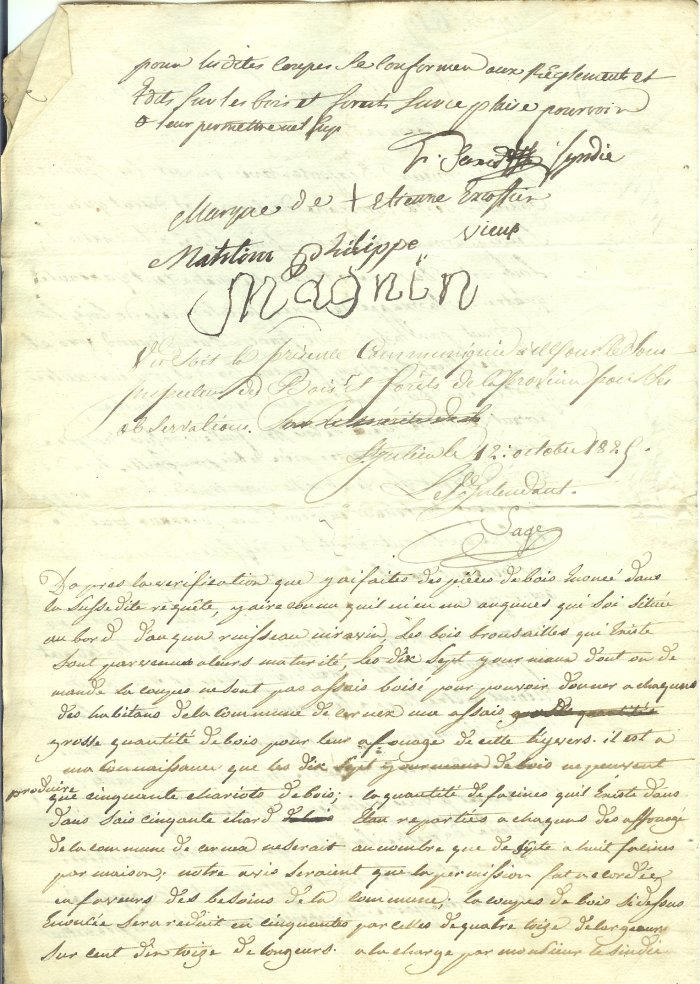 pour lesdites coupes se conformer aux Réglements et
Edits sur les bois et forêts Sur ce plaise pourvoir
& leur permettre
Syndic
Marque de + Etienne Excoffier
vieux
Philippe
Magnin
Vu soit la présente Communiquée à Mr le Sous
inspecteur des Bois et forêts de la province pour ses
observations.
St Julien le 12: octobre 1825.
L'Intendant.
Sage
Dapres la verification que y ai faites des pièces de bois enoncé dans
la Susdedite requête, y ai reconnu quil ni en na auqunes qui soi située
au bord d'auqun ruisseau ni ravin, les bois brousailles qui Existe
sont parvenu a leurs maturité, les dix sept journaux dont on de
mande la coupes ne sont pas assais boisé pour pouvoir donner a chaquns
des habitans de la commune de cernex une assais
grosse quantité de bois pour leur afouage de cette hyvers. il est a
ma connaissance que les dix sept journaux de bois ne peuvent
produire
que cinquante chariots de bois; la quantité de facines quil Existe dans
dans sais cinqante chard reparties a chaquns des affouagé
de la commune de cernex ne serait au nombre que de sépte a huit facines
par maison; notre avis seraient que la permission fut accordée
en faveurs des besoins de la commune, la coupes de bois sidessus
Enoncée sera réduit en cinquantes parcelles de quatre toize de largeurs
sur cent dix toize de longeurs. a la charge par monsieur le sindic